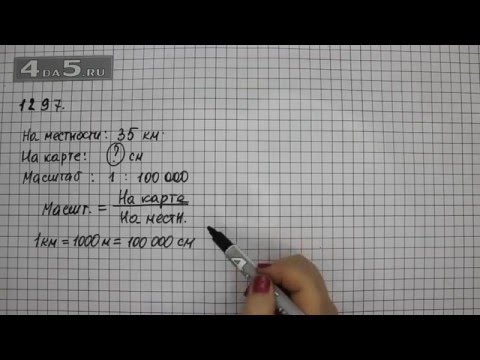 4DA5.RU
1297.
На местности: 35 км.
На карте: ? см
Масштаб: 1 : 100 000
Масшт. = На карте / На местн.
1 км = 1000 м = 100 000 см